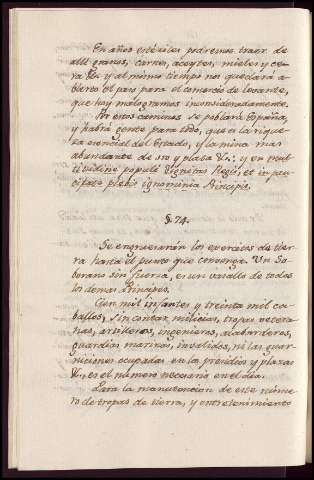 En años estériles podremos traer de
allí granos, carnes, aceytes, mieles y ce-
ra &a. y al mismo tiempo nos quedará a-
bierto el paso para el comercio de levante,
que hay malogramos inconsideradamente.
Por estos caminos se poblará España,
y habrá gente para todo, que es la rique-
za esencial del Estado, y la mina mas
abundante de oro y plata &a.: y en mult-
titudine populi dignitas Regis, et in pau-
citate plebis ignominia Principis.
§. 74.
Se engruesarán los exercitos de tier-
ra hasta el punto que convenga. Un So-
berano sin fuerza, es un vasallo de todos
los demas Principes.
Cien mil infantes y treinta mil ca-
ballos, sin contar milicias, tropas vetera-
nas, artilleros, ingenieros, alabarderos,
guardias marinas, invalidos, ni las guar-
niciones ocupadas en los presidios y plazas
&a. es el número necesario en el dia.
Para la manutencion de este núme-
ro de tropas de tierra, y entretenimiento